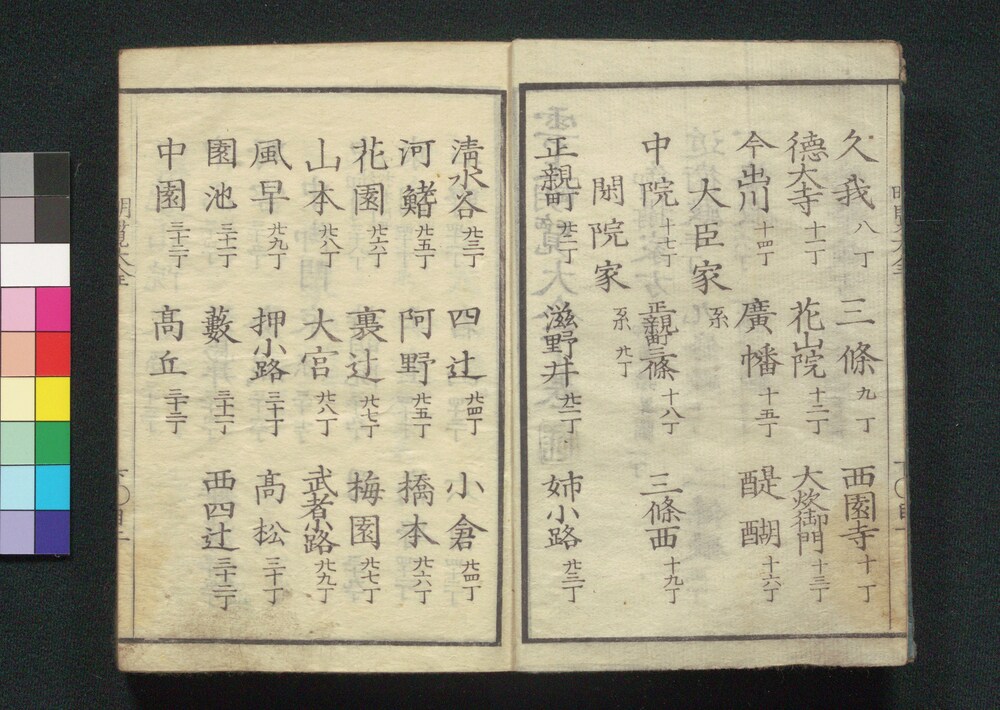 久我 八丁 三條 九丁 西園寺 十丁
德大寺 十一丁 花山院 十二丁 大炊御門 十三丁
今出川 十四丁 廣幡 十五丁 醍醐 十六丁
大臣家 系
中院 十七丁 正親町三條 十八丁 三條西 十九丁
閑院家 系 廿丁
正親町 廿二丁 滋野井 廿二丁 姉小路 廿三丁
清水谷 廿三丁 四辻 廿四丁 小倉 廿四丁
河鰭 廿五丁 阿野 廿五丁 橋本 廿六丁
花園 廿六丁 裏辻 廿七丁 梅園 廿七丁
山本 廿八丁 大宮 廿八丁 武者小路 廿九丁
風早 廿九丁 押小路 三十丁 髙松 三十丁
園池 三十一丁 藪 三十一丁 西四辻 三十二丁
中園 三十二丁 髙丘 三十二丁